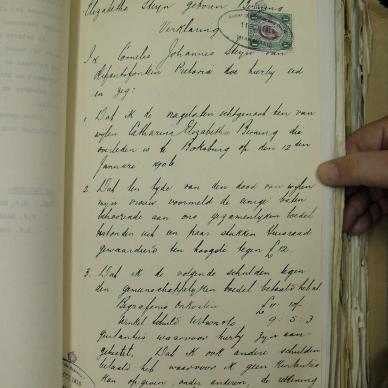 Elizabetha Steyn geboren Bewang
Verklaring
Ik Cornelis Johannes Steyn van
Olifantsfontein Pretoria doe hierby eed
en zeg:
1. Dat ik de nagelaten echtgenoot ben van
wylen Catharina Elizabetha die
overleden is te Boksburg op den 12 den
Januarie 1906
2. Dat ten tyde van den dood van wylen
myn vrouw voormeld de eenige baten
behoorende aan ons gezamentlyken boedel
bestonden uit een paar stukken huisraad
gewaardeerd ten hoogste tegen £12
3. Dat ik de volgende schulden tegen
den gemeenschappelyken boedel betaald heb al
Begrafenis Onkosten £11: 10/-
Winkel Schuld 9: 5: 3
quitanties waarvoor hierby zyn aan-
gehecht. Dat ik ook andere schulden
betaald heb waarvoor ik geen kwitanties
kan opgeven, onder anderen, de rekening